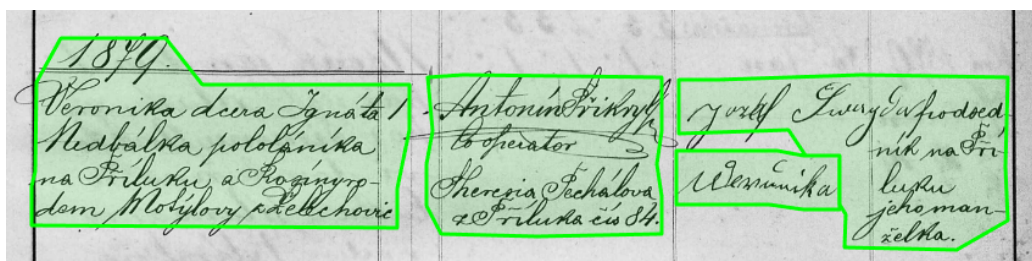 1879.
Veronika dcera Ignáta 1.
Nedbálka pololáníka
na Příluku, a Rozíny ro-
dem Motýlovy z Želechovic
Antonín Přikryl
Cooperator
Theresia Pechálova
z Příluka čís 84.
Jozef podsed-
ník na Pří-
luku
Weronika
jeho man-
želka.